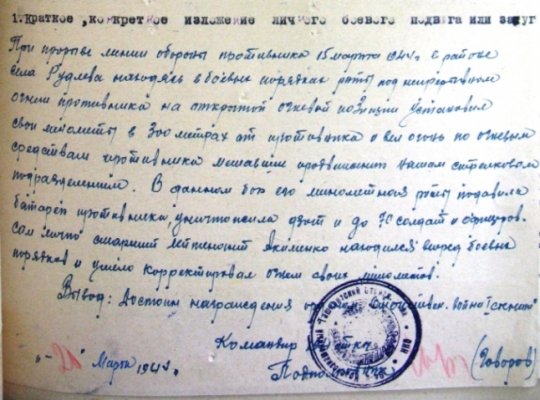 1. Краткое, конкретное изложение личного боевого подвига или заслуг
При прорыве линии обороны противника 15 марта 1944 г. в районе
села Рудлева находясь в боевых порядках роты под непрерывном
огнем противника на открытой огневой позиции установил
свои минометы в 300 метрах от противника и вел огонь по огневым
средствам противника мешавшие продвижению нашим стрелковым
подразделениям. В данном бою его минометная рота подавила
батарею противника, уничтожила дзот и до 70 солдат и офицеров.
Сам лично старший лейтенант Якименко находился впереди боевых
порядков и умело корректировал огнем своих минометов.
Вывод: Достоин награждения Отечествен. Война
Командир
Подполковник (Говоров)
"-20 Марта 1944 г.